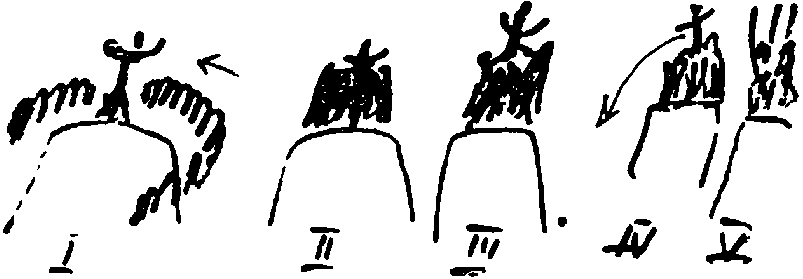 I II III IV V